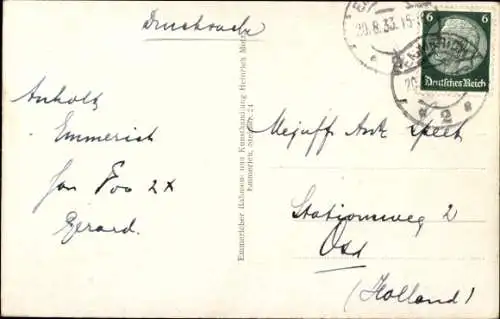 Drucksache
Anholt
Emmerich
Jan Pos 2x
Gerard.
Emmericher Rahmen- und Kunsthandlung Heinrich
Emmerich, 24
20.8.33.15
6
Deutsches Reich
Mejuff. Ant.
Stationsweg 2
Oss
(Holland)